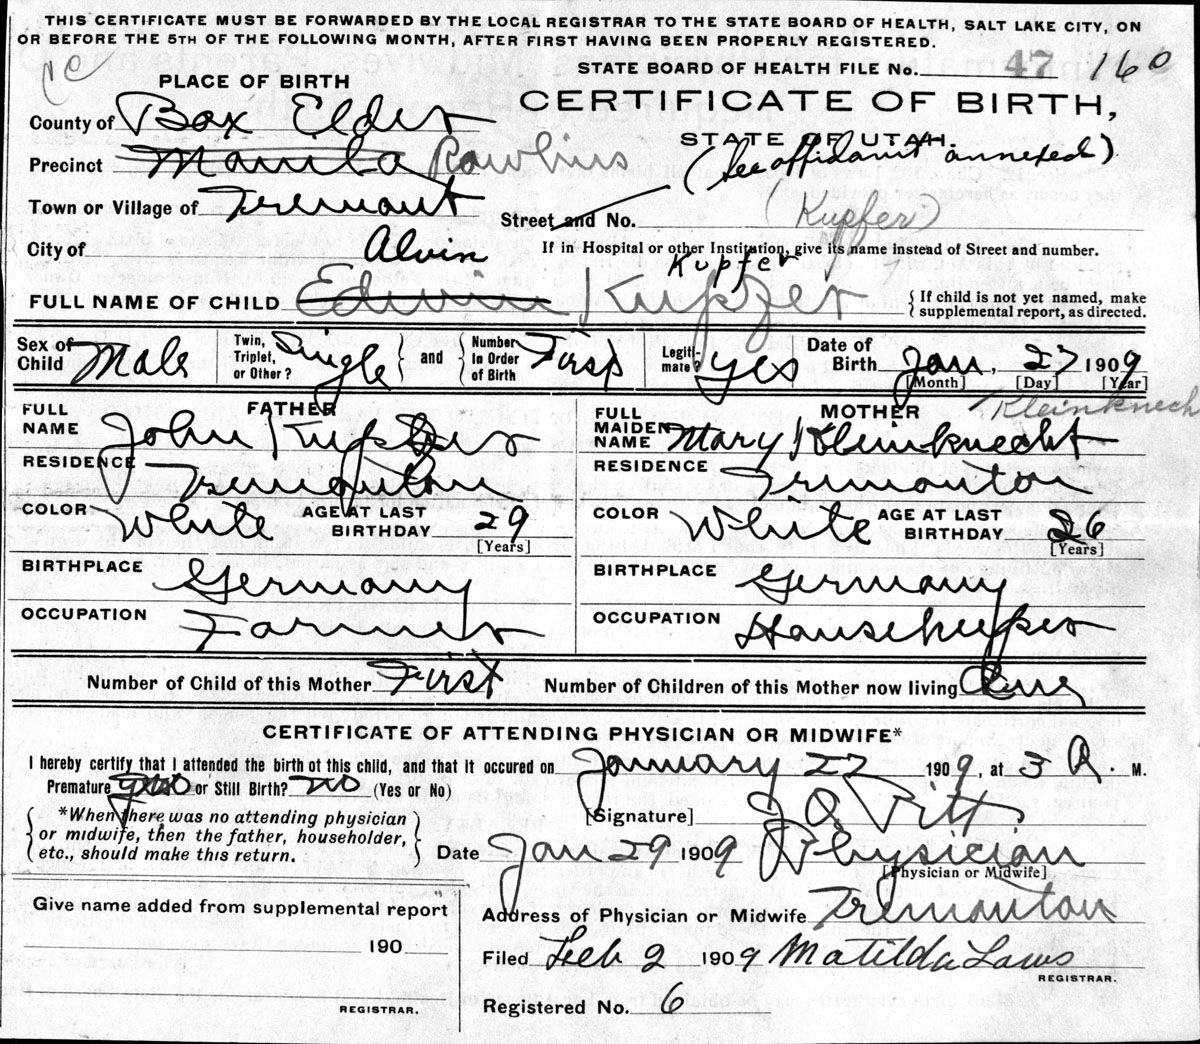 THIS CERTIFICATE MUST BE FORWARDED BY THE LOCAL REGISTRAR TO THE STATE BOARD OF HEALTH, SALT LAKE CITY, ON
OR BEFORE THE 5TH OF THE FOLLOWING MONTH, AFTER FIRST HAVING BEEN PROPERLY REGISTERED.
STATE BOARD OF HEALTH FILE No. 47 160
PLACE OF BIRTH
CERTIFICATE OF BIRTH,
County of Box Elder
STATE OF UTAH.
(See affidavit annexed)
Precinct Manila Rawlins
Town or Village of Tremont
Street and No. (Kupfer)
City of
If in Hospital or other Institution, give its name instead of Street and number.
Alvin Kupfer
FULL NAME OF CHILD Edwin Kupfer
{ If child is not yet named, make
supplemental report, as directed.
Sex of Child Male
Twin, Triplet, or Other? Single } and { Number In Order of Birth First
Legitimate? yes
Date of Birth Jan, 27 1909
[Month] [Day] [Year]
FATHER
FULL NAME John Kupfer
RESIDENCE Tremonton
COLOR White AGE AT LAST BIRTHDAY 29
[Years]
BIRTHPLACE Germany
OCCUPATION Farmer
MOTHER Kleinknech
FULL MAIDEN NAME Mary Kleinknecht
RESIDENCE Tremonton
COLOR White AGE AT LAST BIRTHDAY 26
[Years]
BIRTHPLACE Germany
OCCUPATION Housekeeper
Number of Child of this Mother First Number of Children of this Mother now living One
CERTIFICATE OF ATTENDING PHYSICIAN OR MIDWIFE*
I hereby certify that I attended the birth of this child, and that it occured on January 27 1909, at 3 A. M.
Premature or Still Birth? no (Yes or No)
*When there was no attending physician
or midwife, then the father, householder,
etc., should make this return.
[Signature]
Date Jan 29 1909 Physician
[Physician or Midwife]
Give name added from supplemental report
190
REGISTRAR.
Address of Physician or Midwife Tremonton
Filed Feb 2 1909 Matilda Laws
REGISTRAR.
Registered No. 6